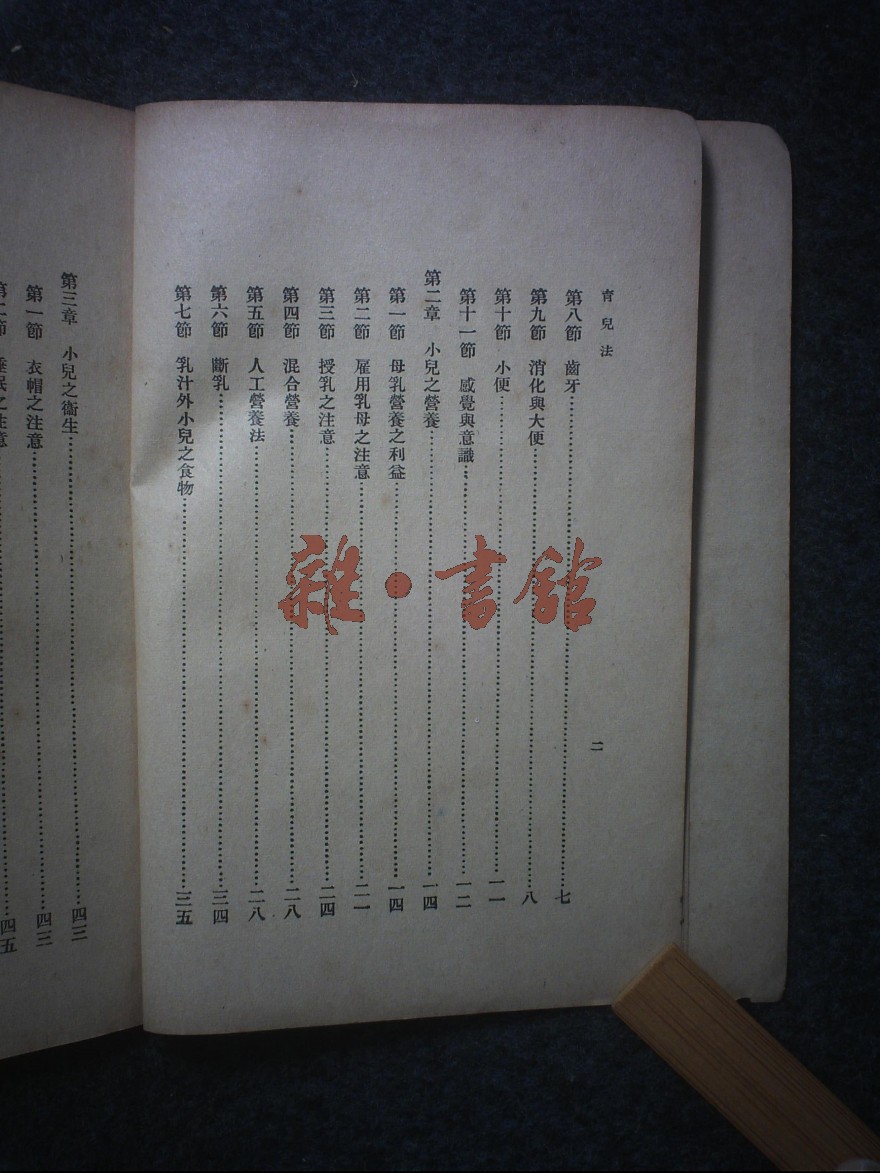 育兒法
二
第八節 齒牙……七
第九節 消化與大便……八
第十節 小便……一一
第十一節 感覺與意識……一二
第二章 小兒之營養……一四
第一節 母乳營養之利益……一四
第二節 雇用乳母之注意……二一
第三節 授乳之注意……二四
第四節 混合營養……二八
第五節 人工營養法……二八
第六節 斷乳……三四
第七節 乳汁外小兒之食物……三五
第三章 小兒之衞生……四三
第一節 衣帽之注意……四三
第二節 睡眠之注意……四五
雜·書館